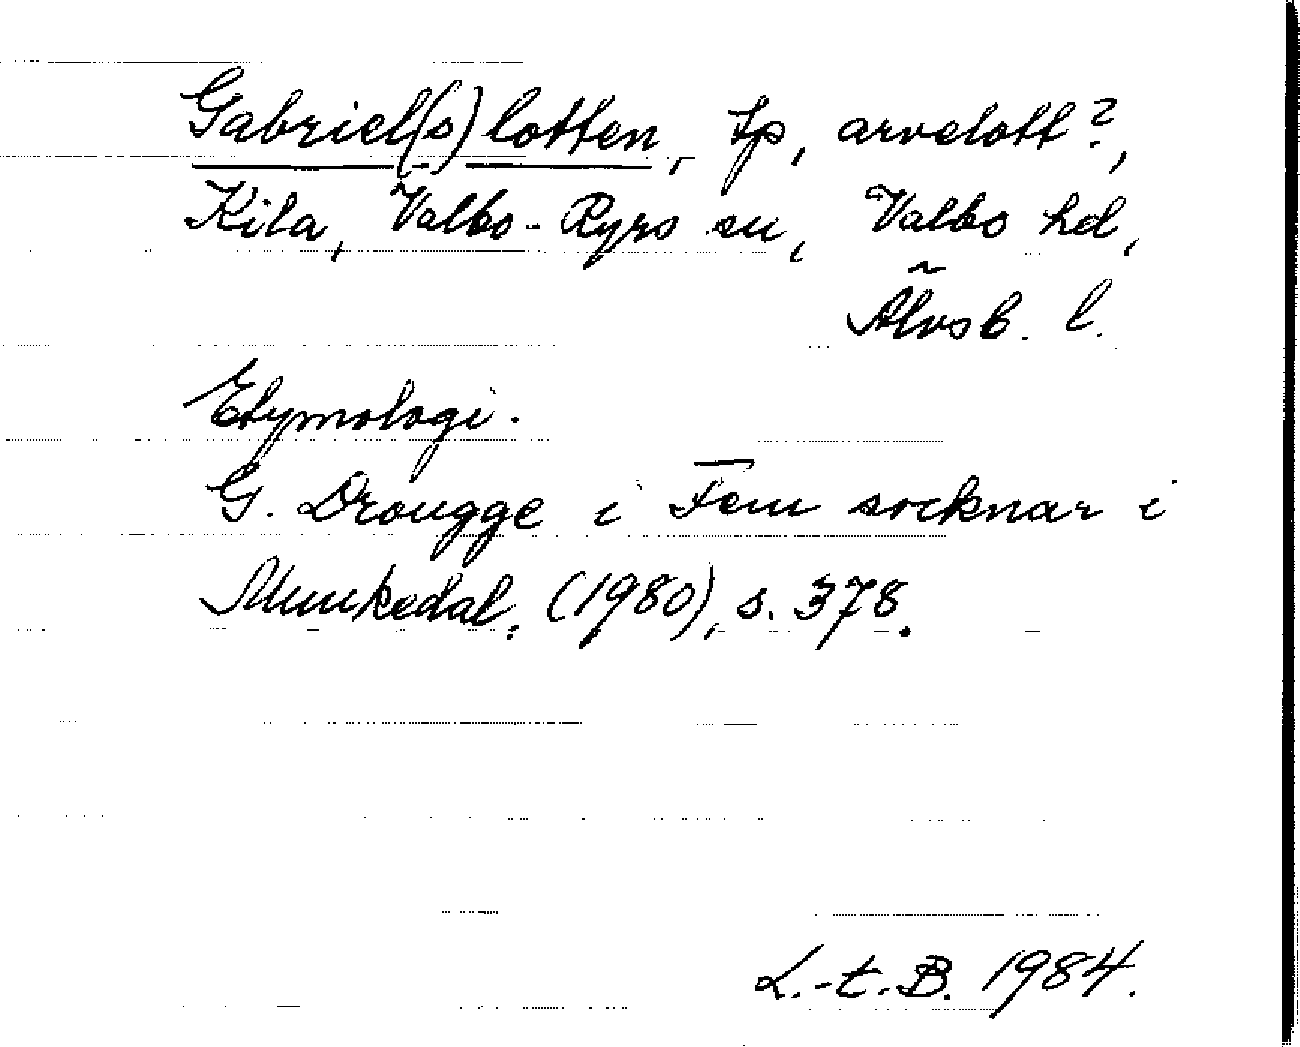 Gabriel(s)lotten, tp, arvelott?,
Kila, Valbo-Ryrs sn, Valbo hd,
Älvsb. l.
Etymologi.
G. Drougge i Fem socknar i
Munkedal, (1980), s. 378.
L.-t. B. 1984.